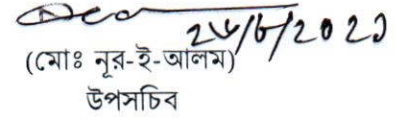 ২৬/৮/২০২১
(মোঃ নূর-ই-আলম)
উপসচিব